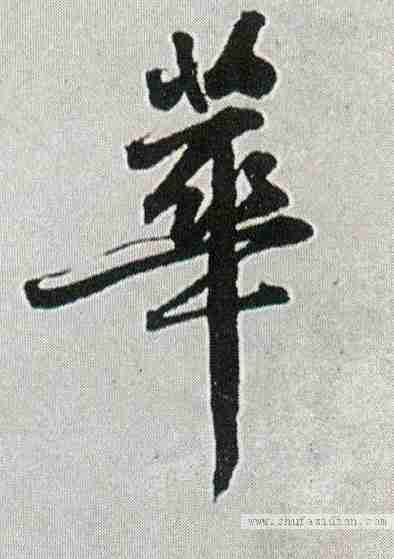 華
www.shufazidian.com